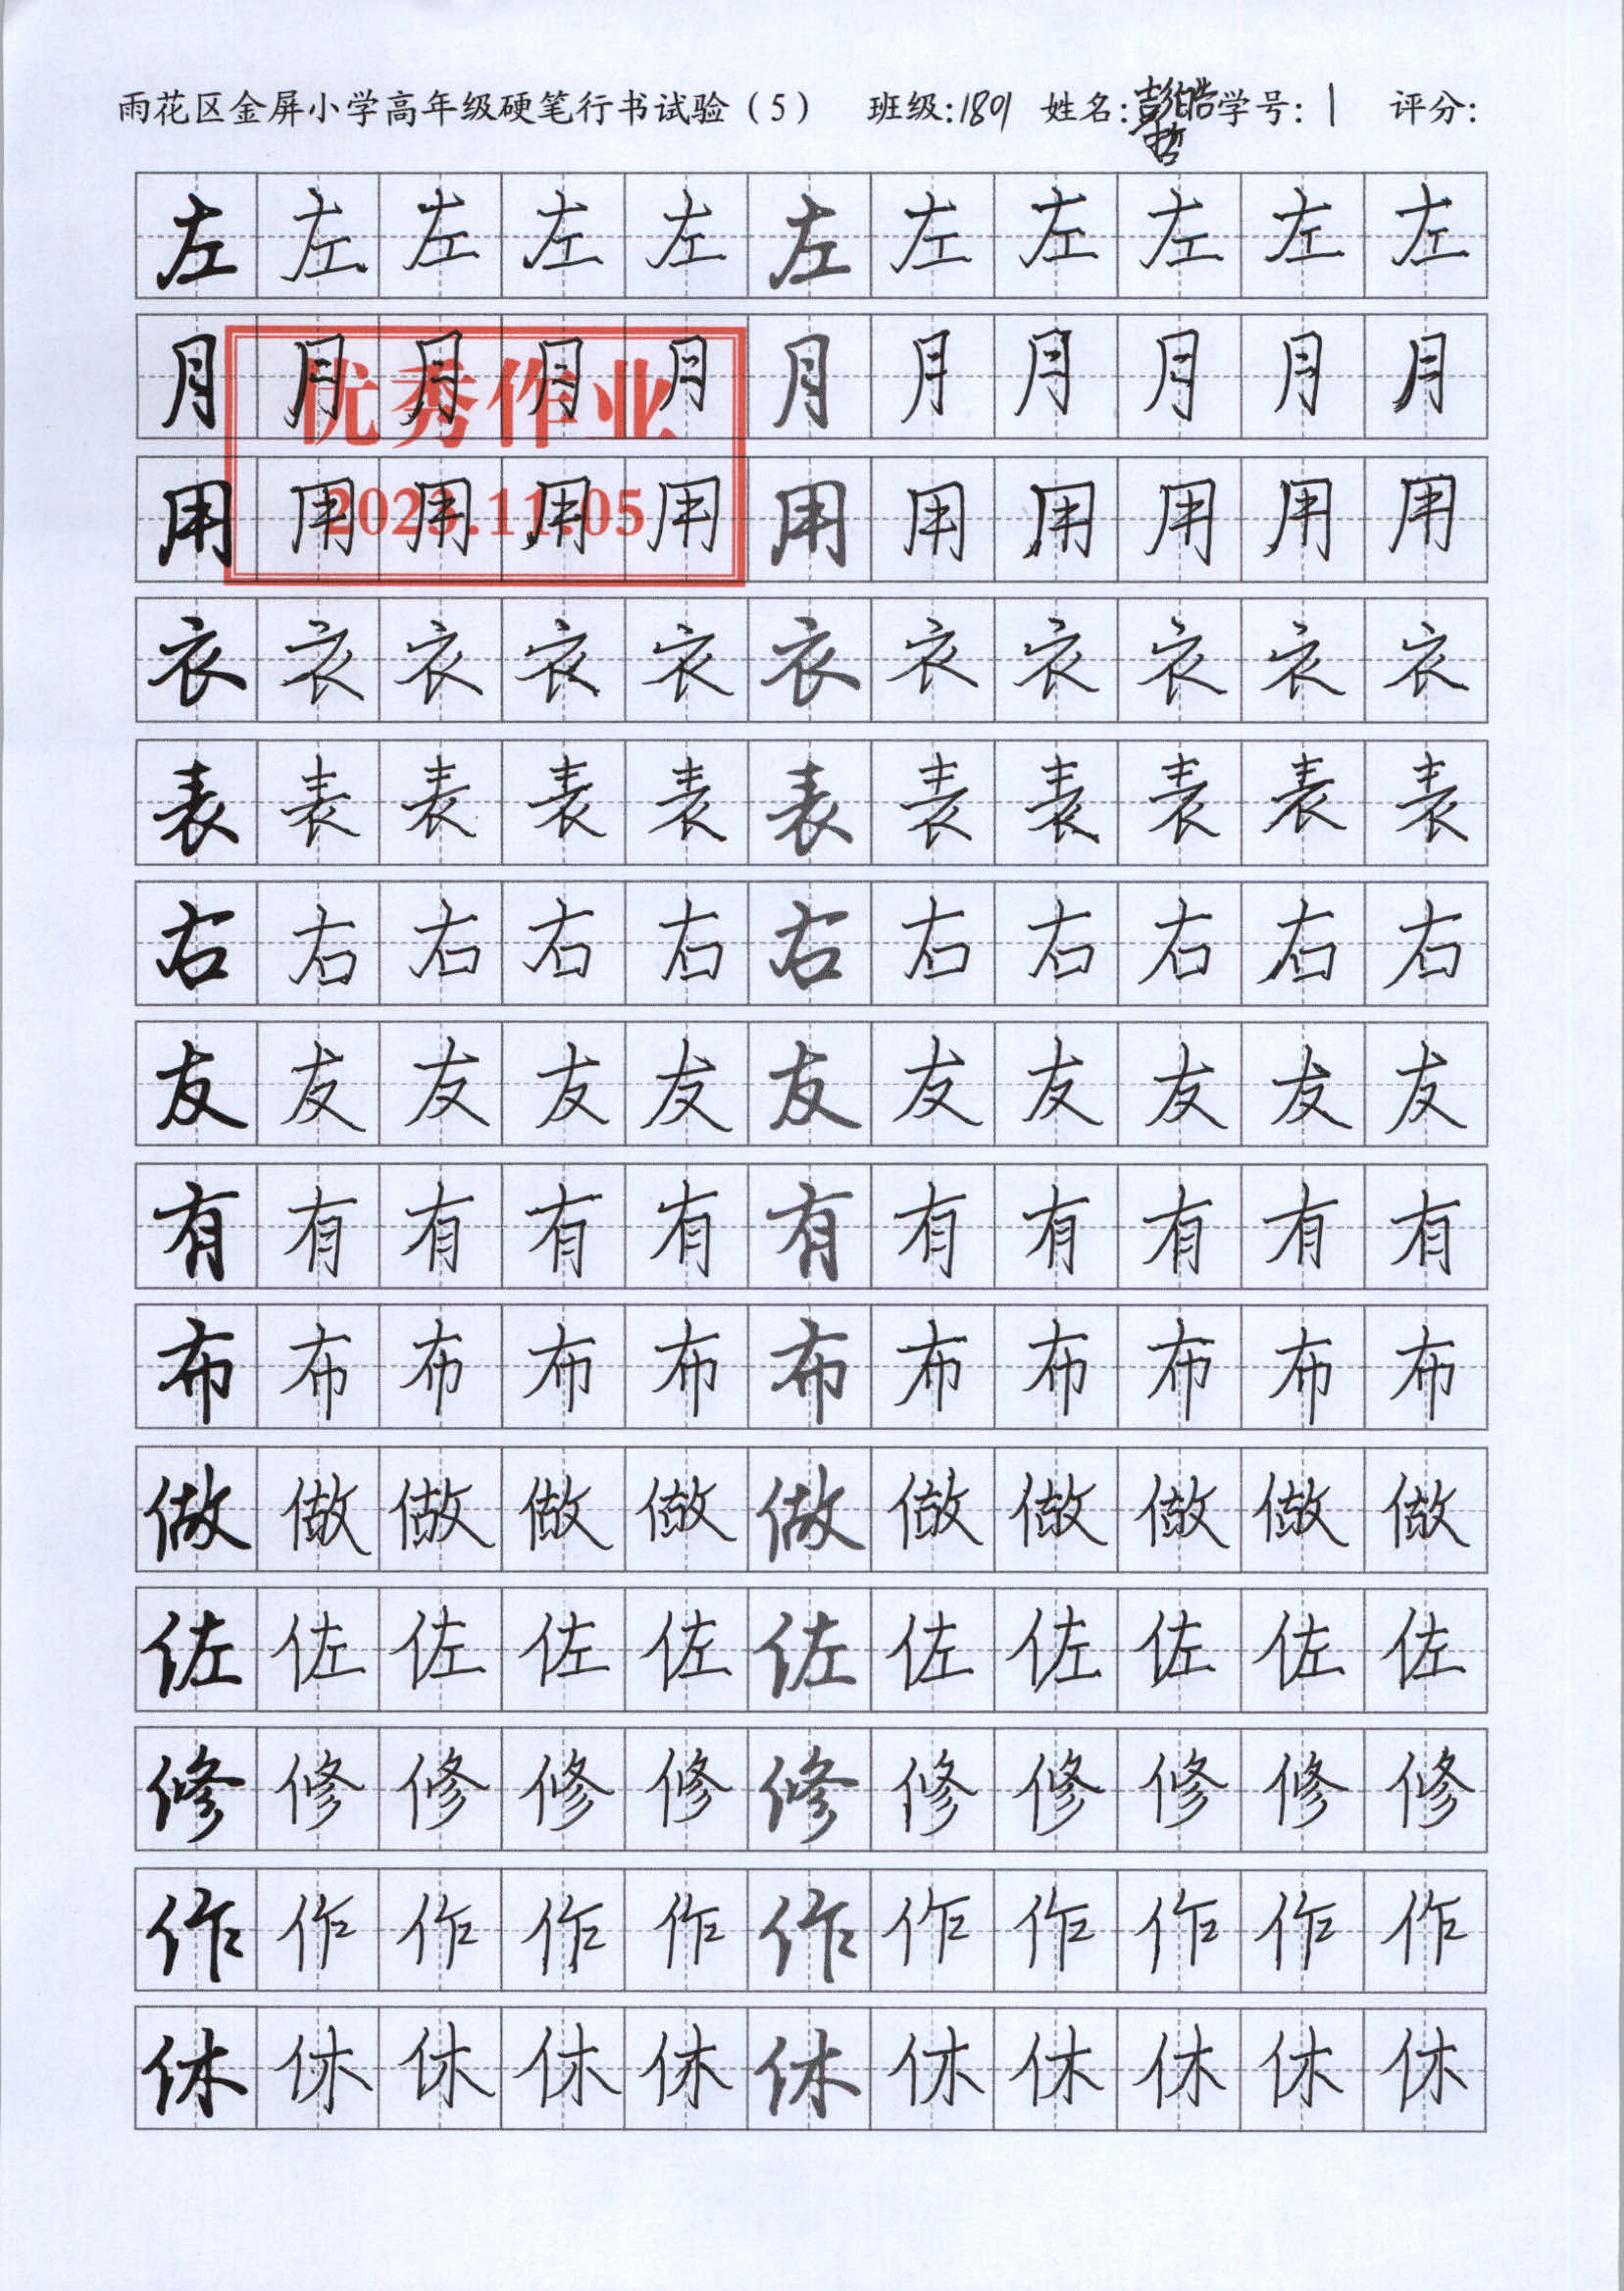 雨花区金屏小学高年级硬笔行书试验（5） 班级:1801 姓名:彭皓哲 学号:1 评分:
左左左左左左左左左左左
月月月月月月月月月月月
优秀作业
用用用用用用用用用用用
2023.11.05
衣衣衣衣衣衣衣衣衣衣衣
表表表表表表表表表表表
右右右右右右右右右右右
友友友友友友友友友友友
有有有有有有有有有有有
布布布布布布布布布布布
做做做做做做做做做做做
佐佐佐佐佐佐佐佐佐佐佐
修修修修修修修修修修修
作作作作作作作作作作作
休休休休休休休休休休休